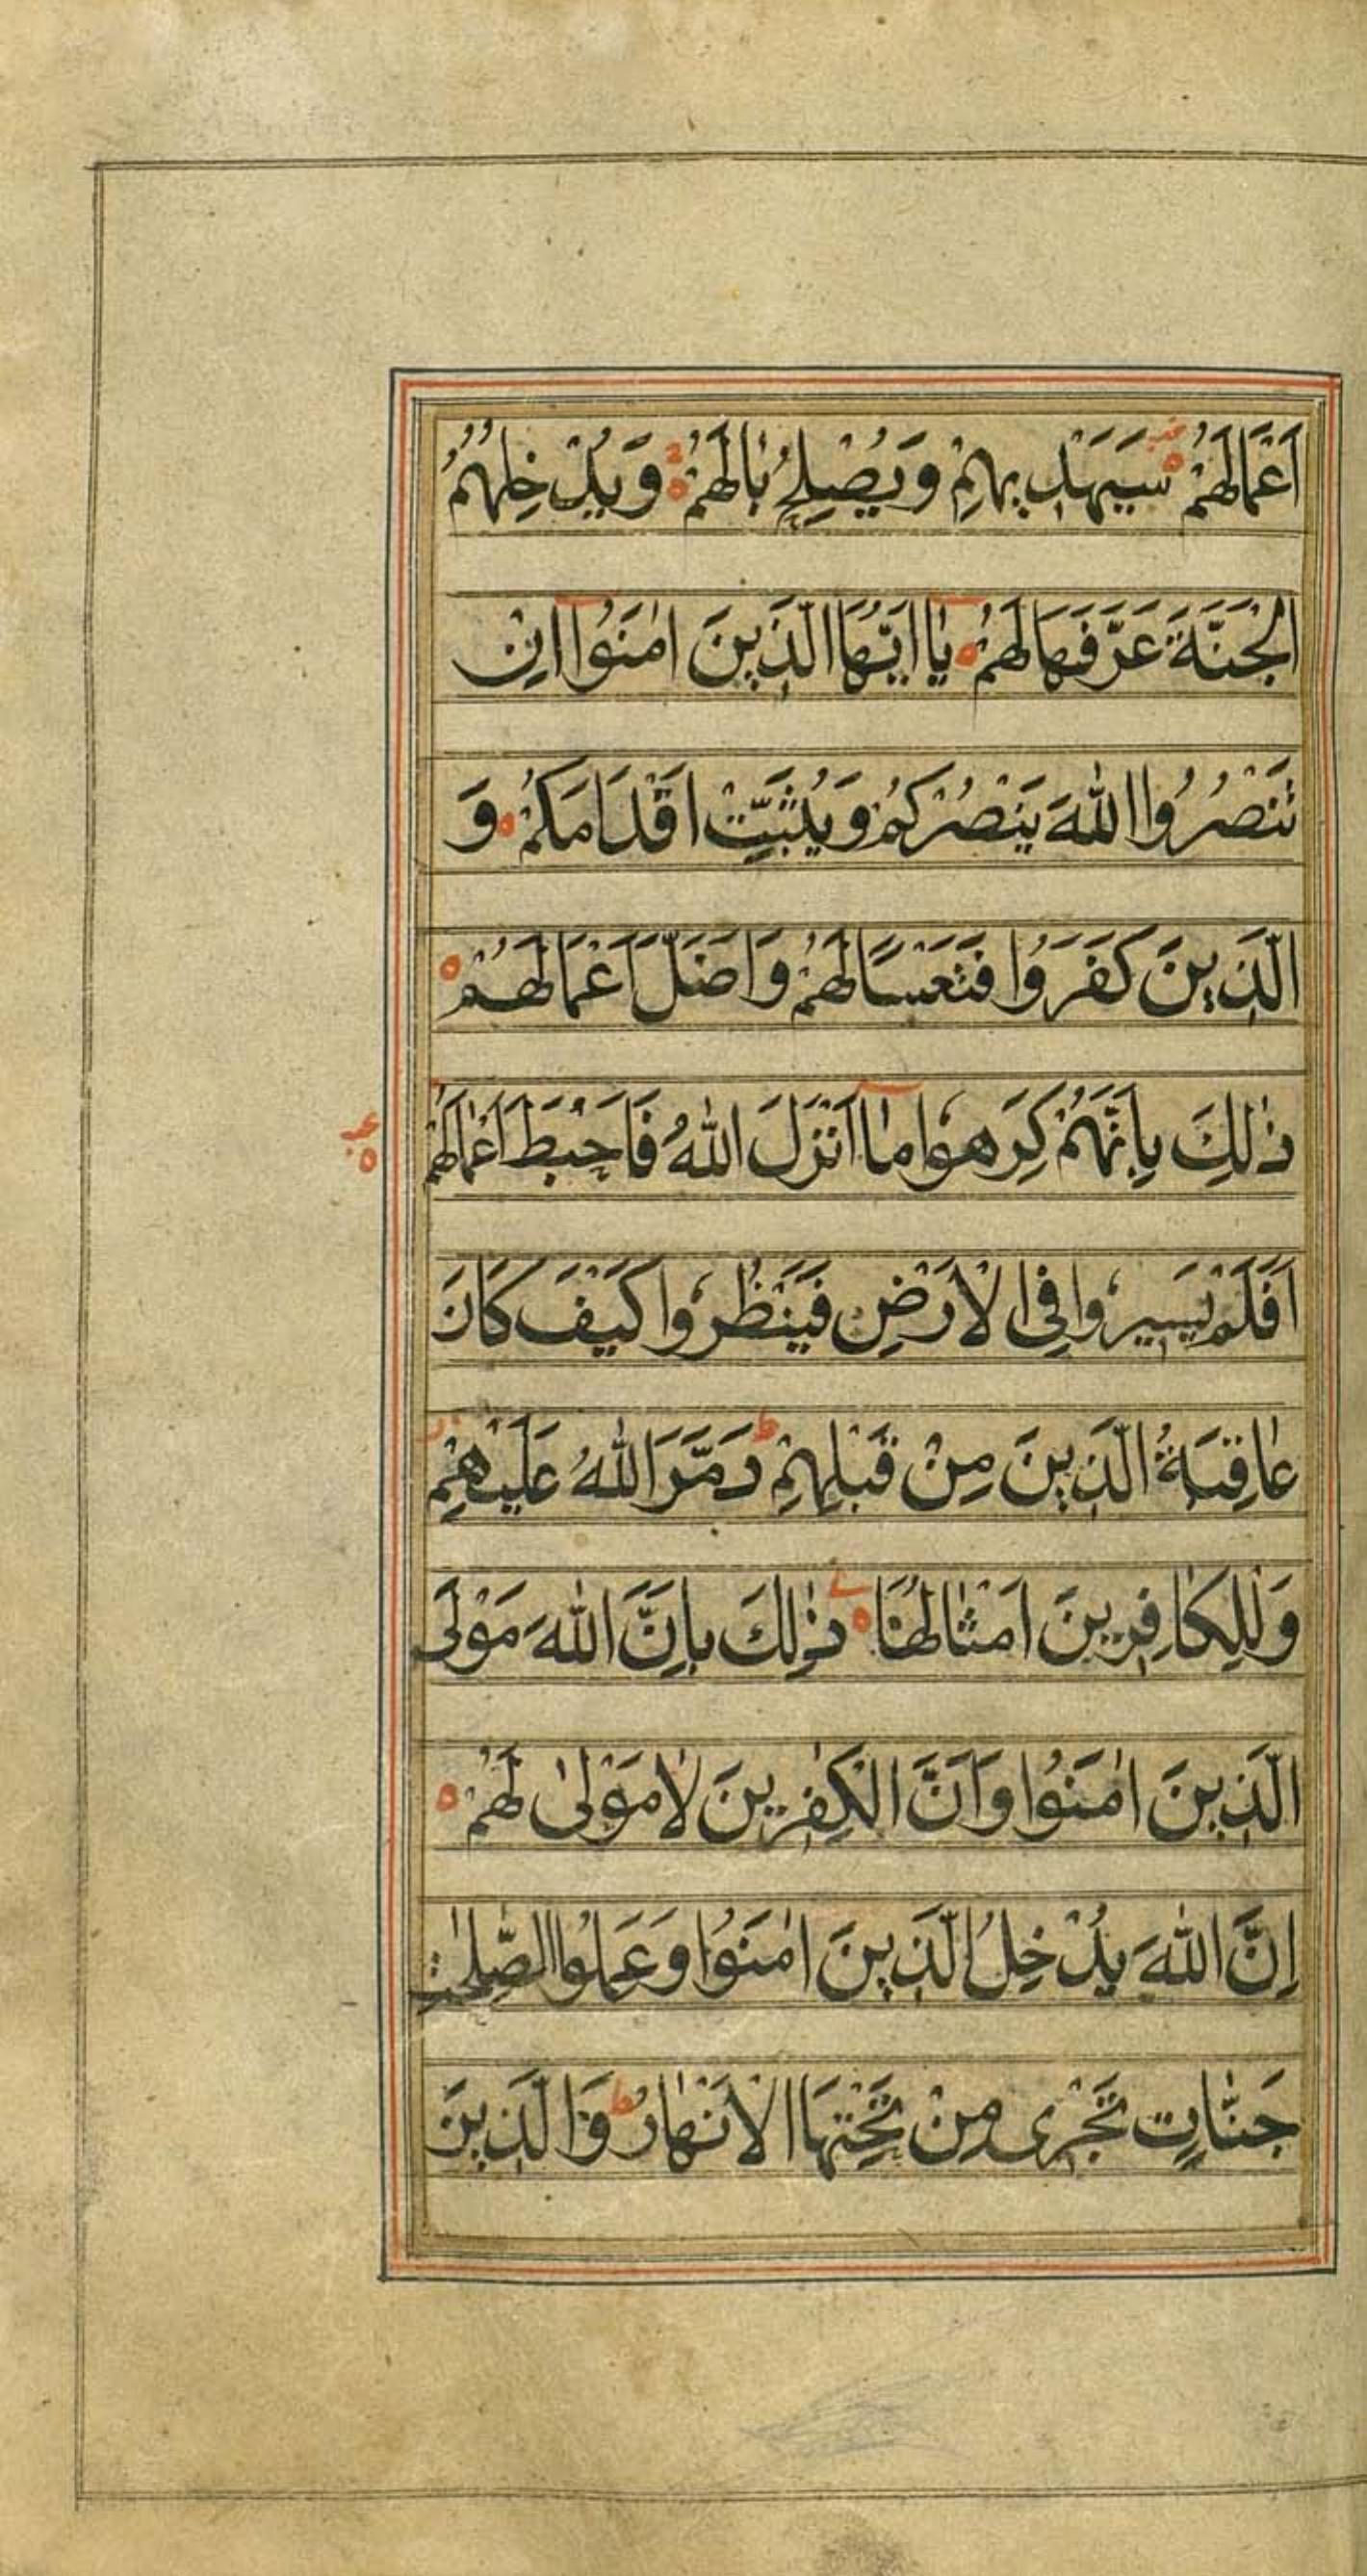 اَعْمَالَهُمْ سَيَهْدِيهِمْ وَيُصْلِحُ بَالَهُمْ وَيُدْخِلُهُمُ
الْجَنَّةَ عَرَّفَهَا لَهُمْ يٰا اَيُّهَا الَّذِينَ اٰمَنُوا اِنْ
تَنْصُرُوا اللّٰهَ يَنْصُرْكُمْ وَيُثَبِّتْ اَقْدَامَكُمْ وَ
الَّذِينَ كَفَرُوا فَتَعْسًا لَهُمْ وَاَضَلَّ اَعْمَالَهُمْ
ذٰلِكَ بِاَنَّهُمْ كَرِهُوا مٰا اَنْزَلَ اللّٰهُ فَاَحْبَطَ اَعْمٰالَهُمْ
اَفَلَمْ يَسِيرُوا فِي الْاَرْضِ فَيَنْظُرُوا كَيْفَ كَانَ
عٰاقِبَةُ الَّذِينَ مِنْ قَبْلِهِمْ دَمَّرَ اللّٰهُ عَلَيْهِمْ
وَلِلْكَافِرِينَ اَمْثٰالُهَا ذٰلِكَ بِاَنَّ اللّٰهَ مَوْلَى
الَّذِينَ اٰمَنُوا وَاَنَّ الْكٰفِرِينَ لَا مَوْلٰى لَهُمْ
اِنَّ اللّٰهَ يُدْخِلُ الَّذِينَ اٰمَنُوا وَعَمِلُوا الصّٰلِحٰتِ
جَنّٰاتٍ تَجْرِى مِنْ تَحْتِهَا الْاَنْهٰارُ وَالَّذِينَ